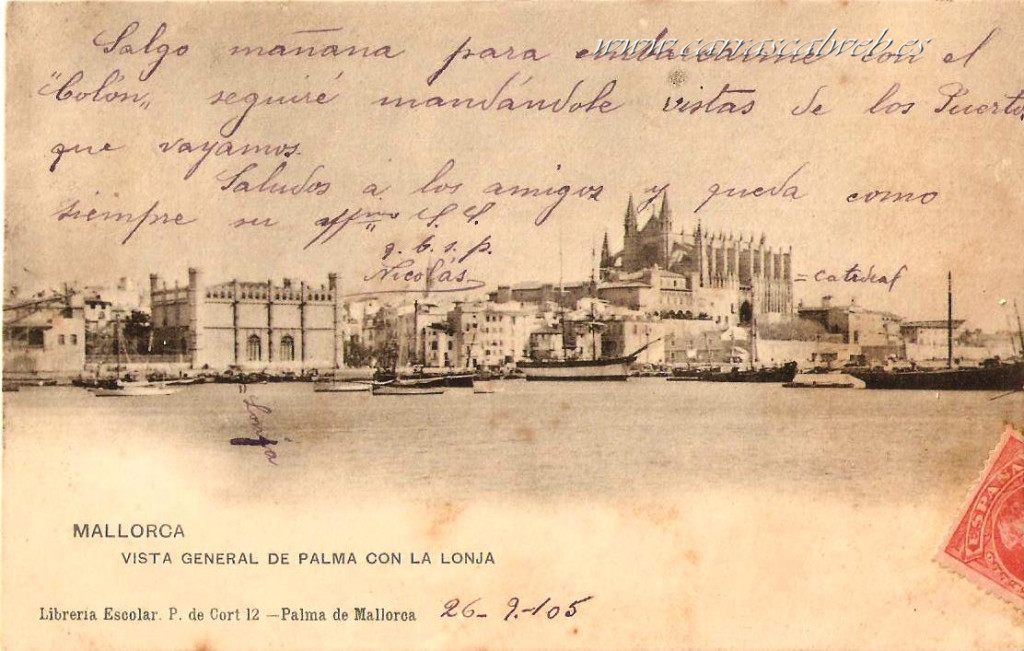 Salgo mañana para embarcarme con el
www.carrascalweb.es
"Colón„ seguiré mandándole vistas de los Puertos
que vayamos.
Saludos a los amigos y queda como
siempre su affmo S. S.
q. b. s. p.
Nicolás
= catedral
= Lonja
ESPAÑA
MALLORCA
VISTA GENERAL DE PALMA CON LA LONJA
Librería Escolar. P. de Cort 12 — Palma de Mallorca 26-9-105